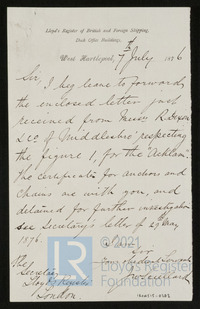 Lloyd's Register of British and Foreign Shipping,
Dock Office Buildings,
West Hartlepool, 7th July 1876
Sir,
I beg leave to forward
the enclosed letter just
received from Messrs R. Dixon
& Co. of Middlesbro' respecting
the figure 1, for the "Acklam".
The certificates for anchors and
chains are with you, and
detained for further investigation
see Secretary's letter of 29th May
1876.
Sir
your obedient Servant
The
Secretary
Lloyd's Register
London.
©2021
Lloyd's Register
Foundation